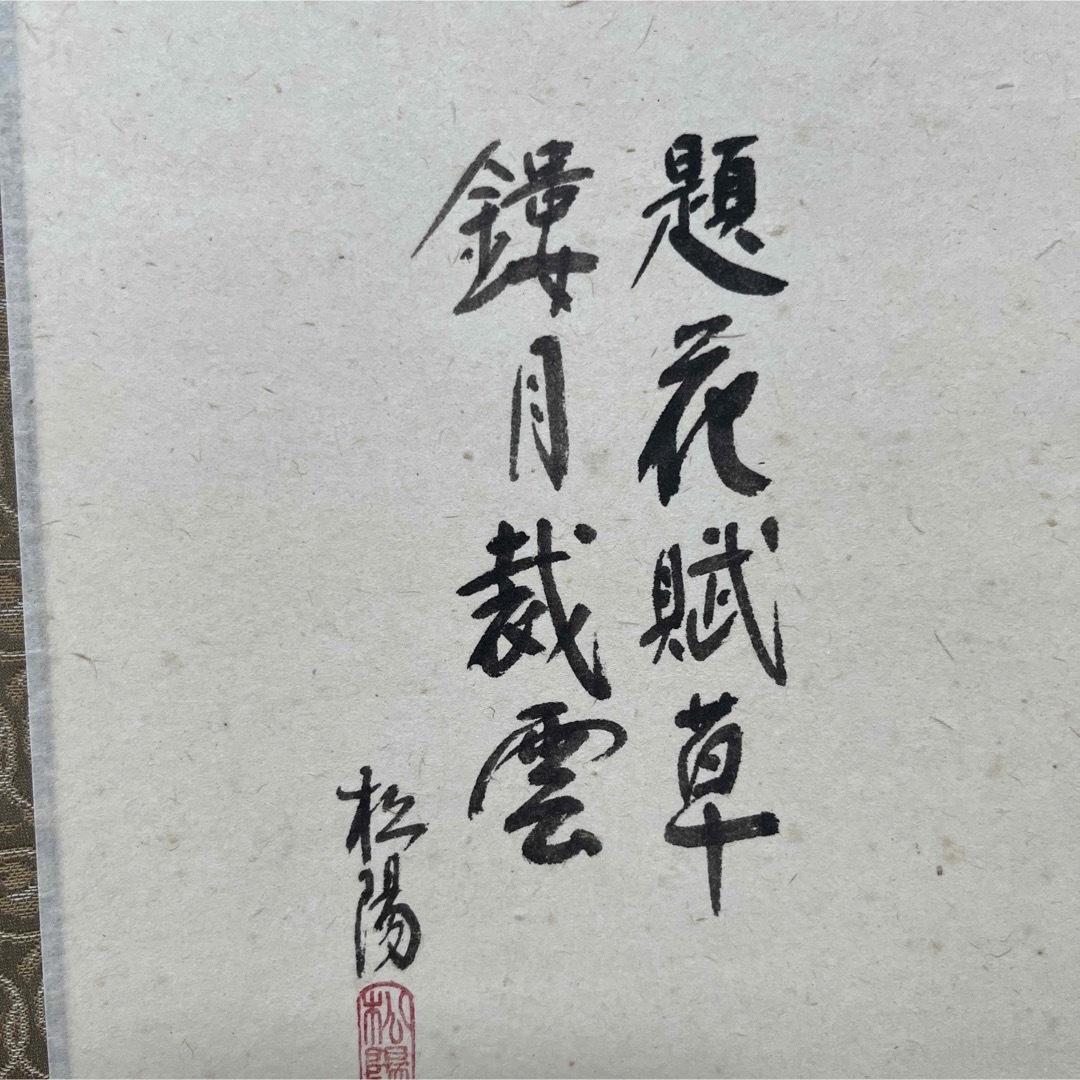 題花賦草
鏤月裁雲
松陽
松陽